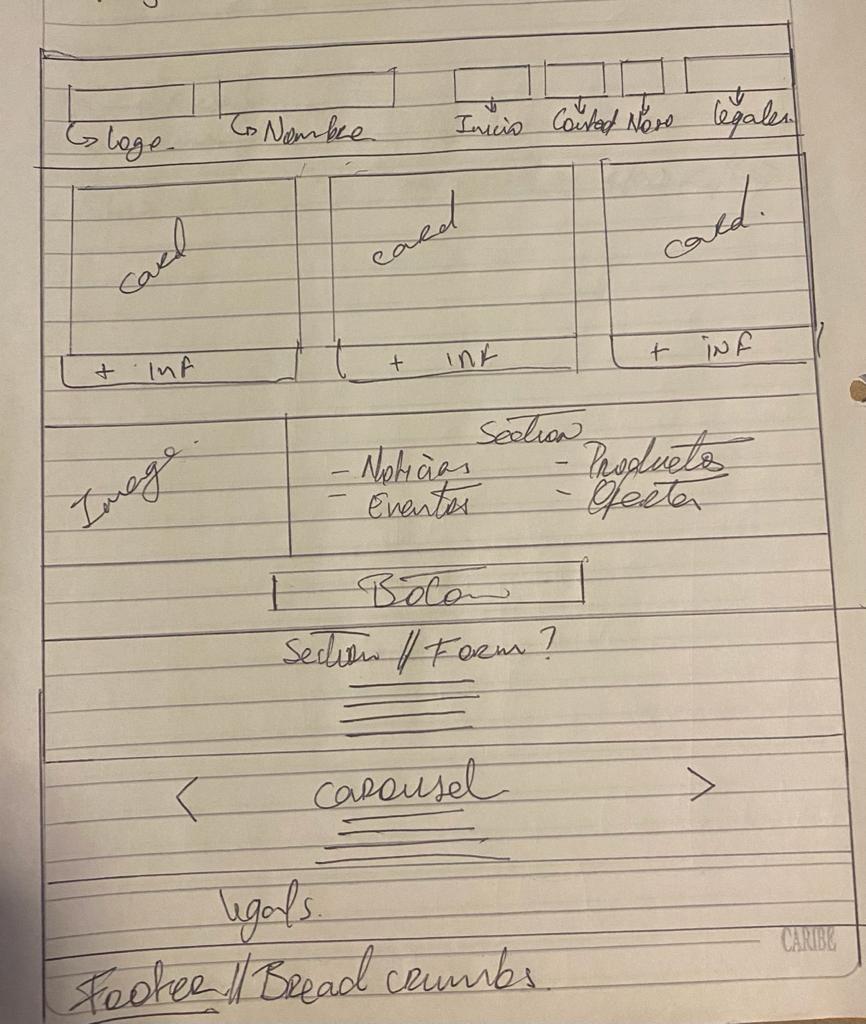 ↳ Logo ↳ Nombre Inicio Contact Noso Legales.
Card card card.
+ inf + inf + inf
Section
Image. - Noticias - Productos
- Eventos - Ofertas
Boton
Section // Form ?
< Carousel >
legals.
CARIBE
Footer // Bread crumbs.